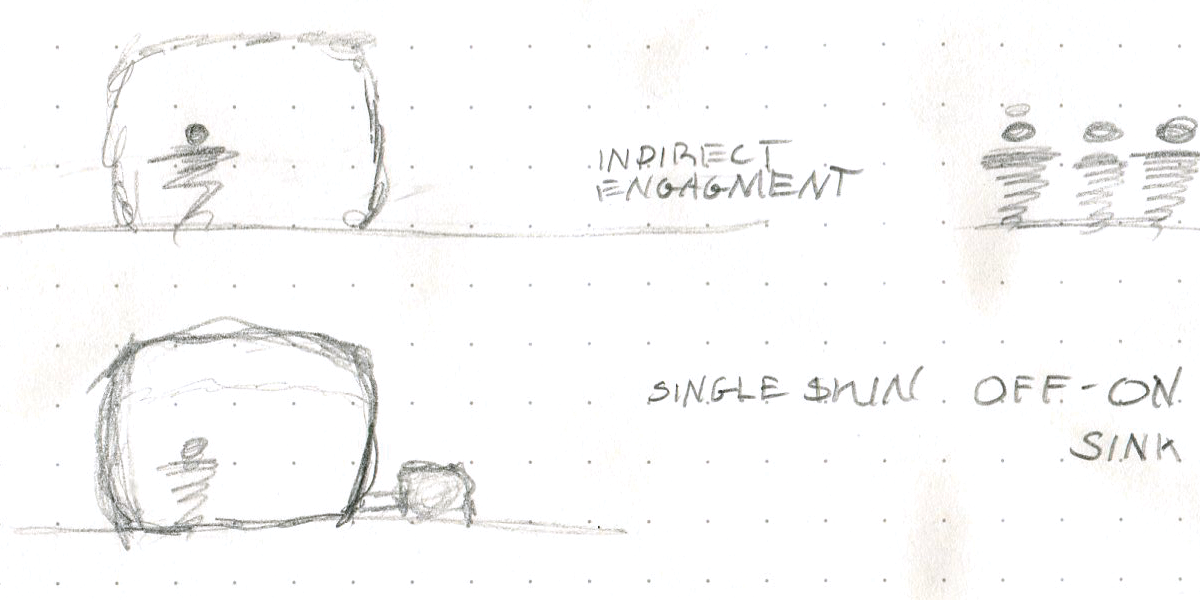 INDIRECT
ENGAGMENT
SINGLE SKIN OFF-ON
SINK